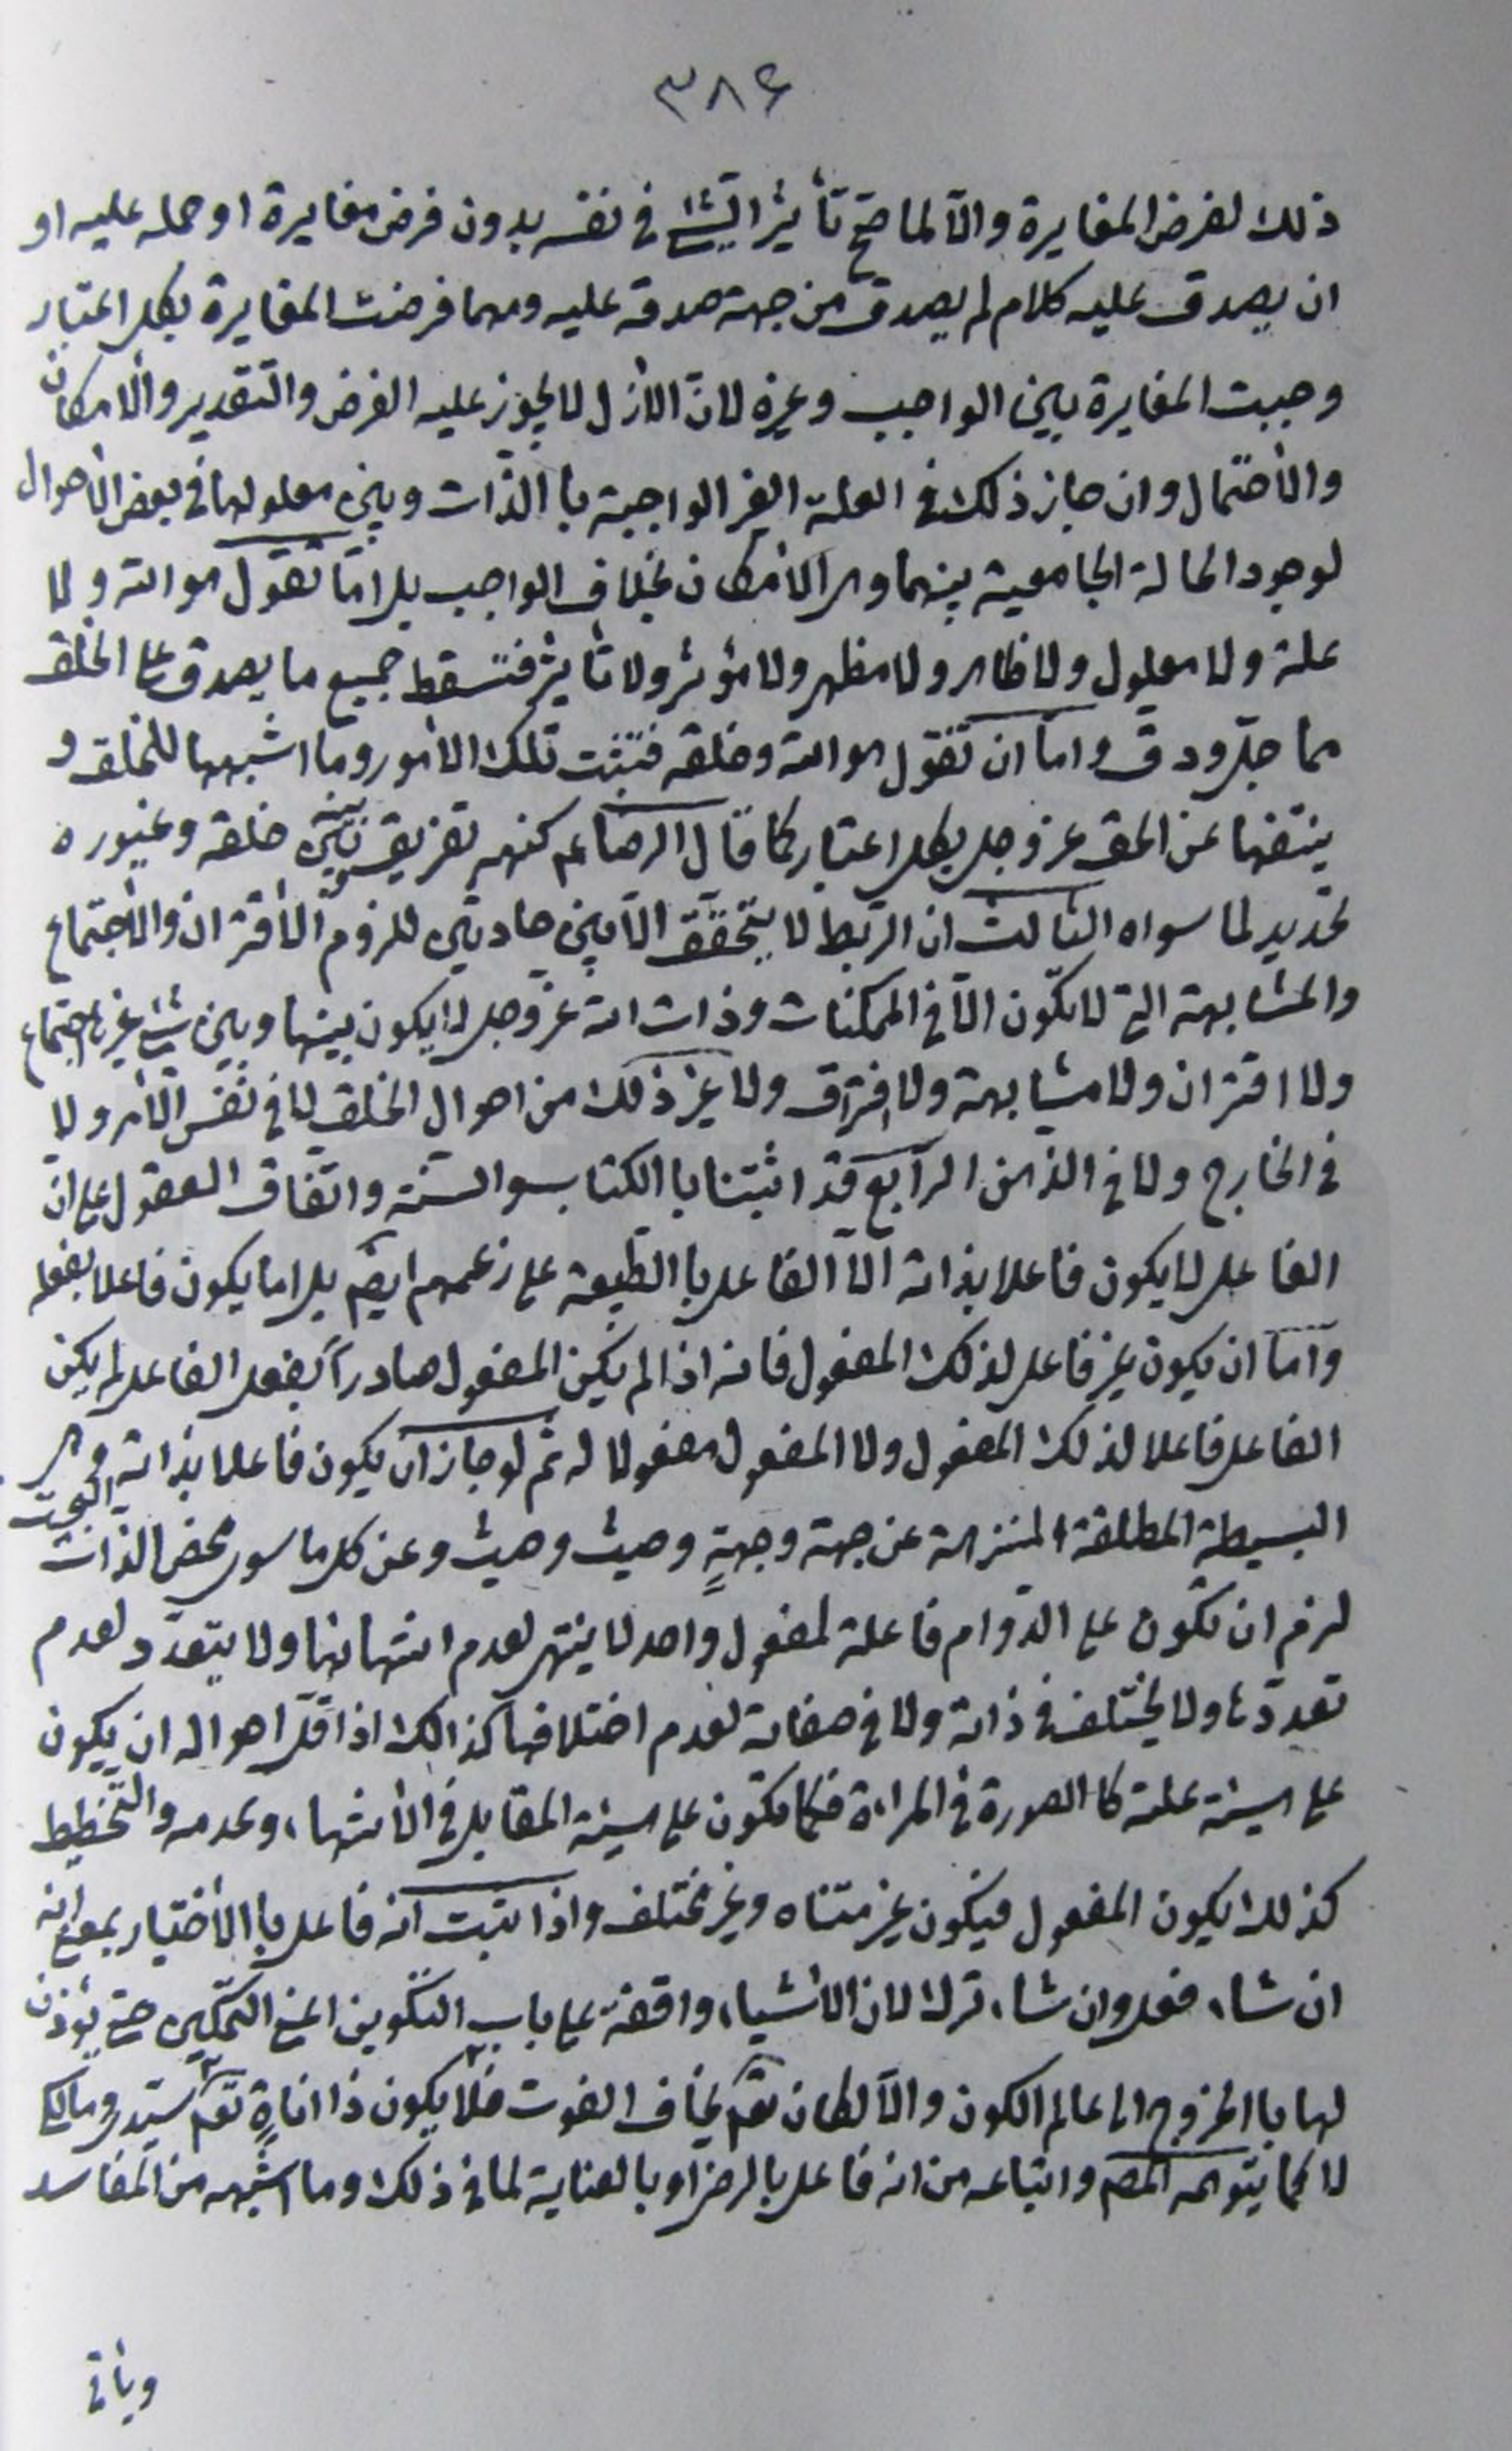 ٣٨۶
ذلك لفرض المغايرة والّا لما صحّ تأثير الشئ في نفسه بدون فرض مغايرة او حمله عليه او
ان يصدق عليه كلام لم يصدق من جهة صدقه عليه ومهما فرضت المغايرة بكل اعتبار
وجبت المغايرة بين الواجب وغيره لانّ الأزل لا يجوز عليه الفرض والتّقدير والامكان
والأحتمال وان جاز ذلك في العلة الغير الواجبة باالذّات وبين معلولها في بعض الأحوال
لوجود الحالة الجامعية بينهما وهى الأمكان بخلاف الواجب بل امّا تقول هو الله ولا
علة ولا معلول ولا ظاهر ولا مظهر ولا مؤثر ولا تأثير فتسقط جميع ما يصدق على الخلق
مما جلّ ودق وامّا ان تقول هو الله وخلقه فتثبت تلك الأمور وما اشبهها للخلق و
ينتفها عن الحق عز وجل بكل اعتبار كما قال الرضا عم كنهه تفريق بينه وبين خلقه وغيوره
تحديد لما سواه الثالث ان الرّبط لا يتحقّق الّا بين حادثين للزوم الأقتران والأجتماع
والمشابهة التى لا تكون الّا في الممكنات وذات الله عزّ وجل لا يكون بينها وبين شئ غيرها اجتماع
ولا اقتران ولا مشابهة ولا افتراق ولا غير ذلك من احوال الخلق لا في نفس الأمر ولا
في الخارج ولا في الذهن الرّابع قد اثبتنا باالكتاب والسنّة واتفاق العقول على انّ
الفاعل لا يكون فاعلا بذاته الّا الفاعل باالطّبيعة على زعمهم ايضم بل اما يكون فاعلا بفعله
وامّا ان يكون غير فاعل لذلك المفعول فانه اذا لم يكن المفعول صادراً بفعل الفاعل لم يكن
الفاعل فاعلا لذلك المفعول ولا المفعول مفعولا له ثمّ لو جاز ان يكون فاعلا بذاته وهى
البسيطة المطلقة المنزهة عن جهة وجهةٍ وحيث وحيث وعن كل ما سوى محض الذّات البحت
لزم ان تكون على الدّوام فاعلة لمفعول واحد لا ينتهى لعدم انتهائها ولا يتعدّد لعدم
تعدّدها ولا يختلف في ذاته ولا في صفاته لعدم اختلافها كذالك اذ اقلّ احواله ان يكون
على هيئة علته كاالصورة في المراءة فكما تكون على هيئة المقابل في الأنتهاء وعدمه والتّخطيط
كذلك يكون المفعول فيكون غير متناه وغير مختلف واذا ثبت انّه فاعل باالأختيار بمعنى انّه
ان شاء فعل وان شاء ترك لان الأشياء واقفة على باب التّكوين اعنى التّمكين حتى يؤذن
لها باالخروج الى عالم الكون والّا لكان تعم يخاف الفوت فلا يكون ذا اناةٍ تعم سيّدى ومالكى
لا كما يتوهمه المصم واتباعه من انه فاعل بالرضا او بالعناية لما في ذلك وما اشبهه من المفاسد
ويأتى